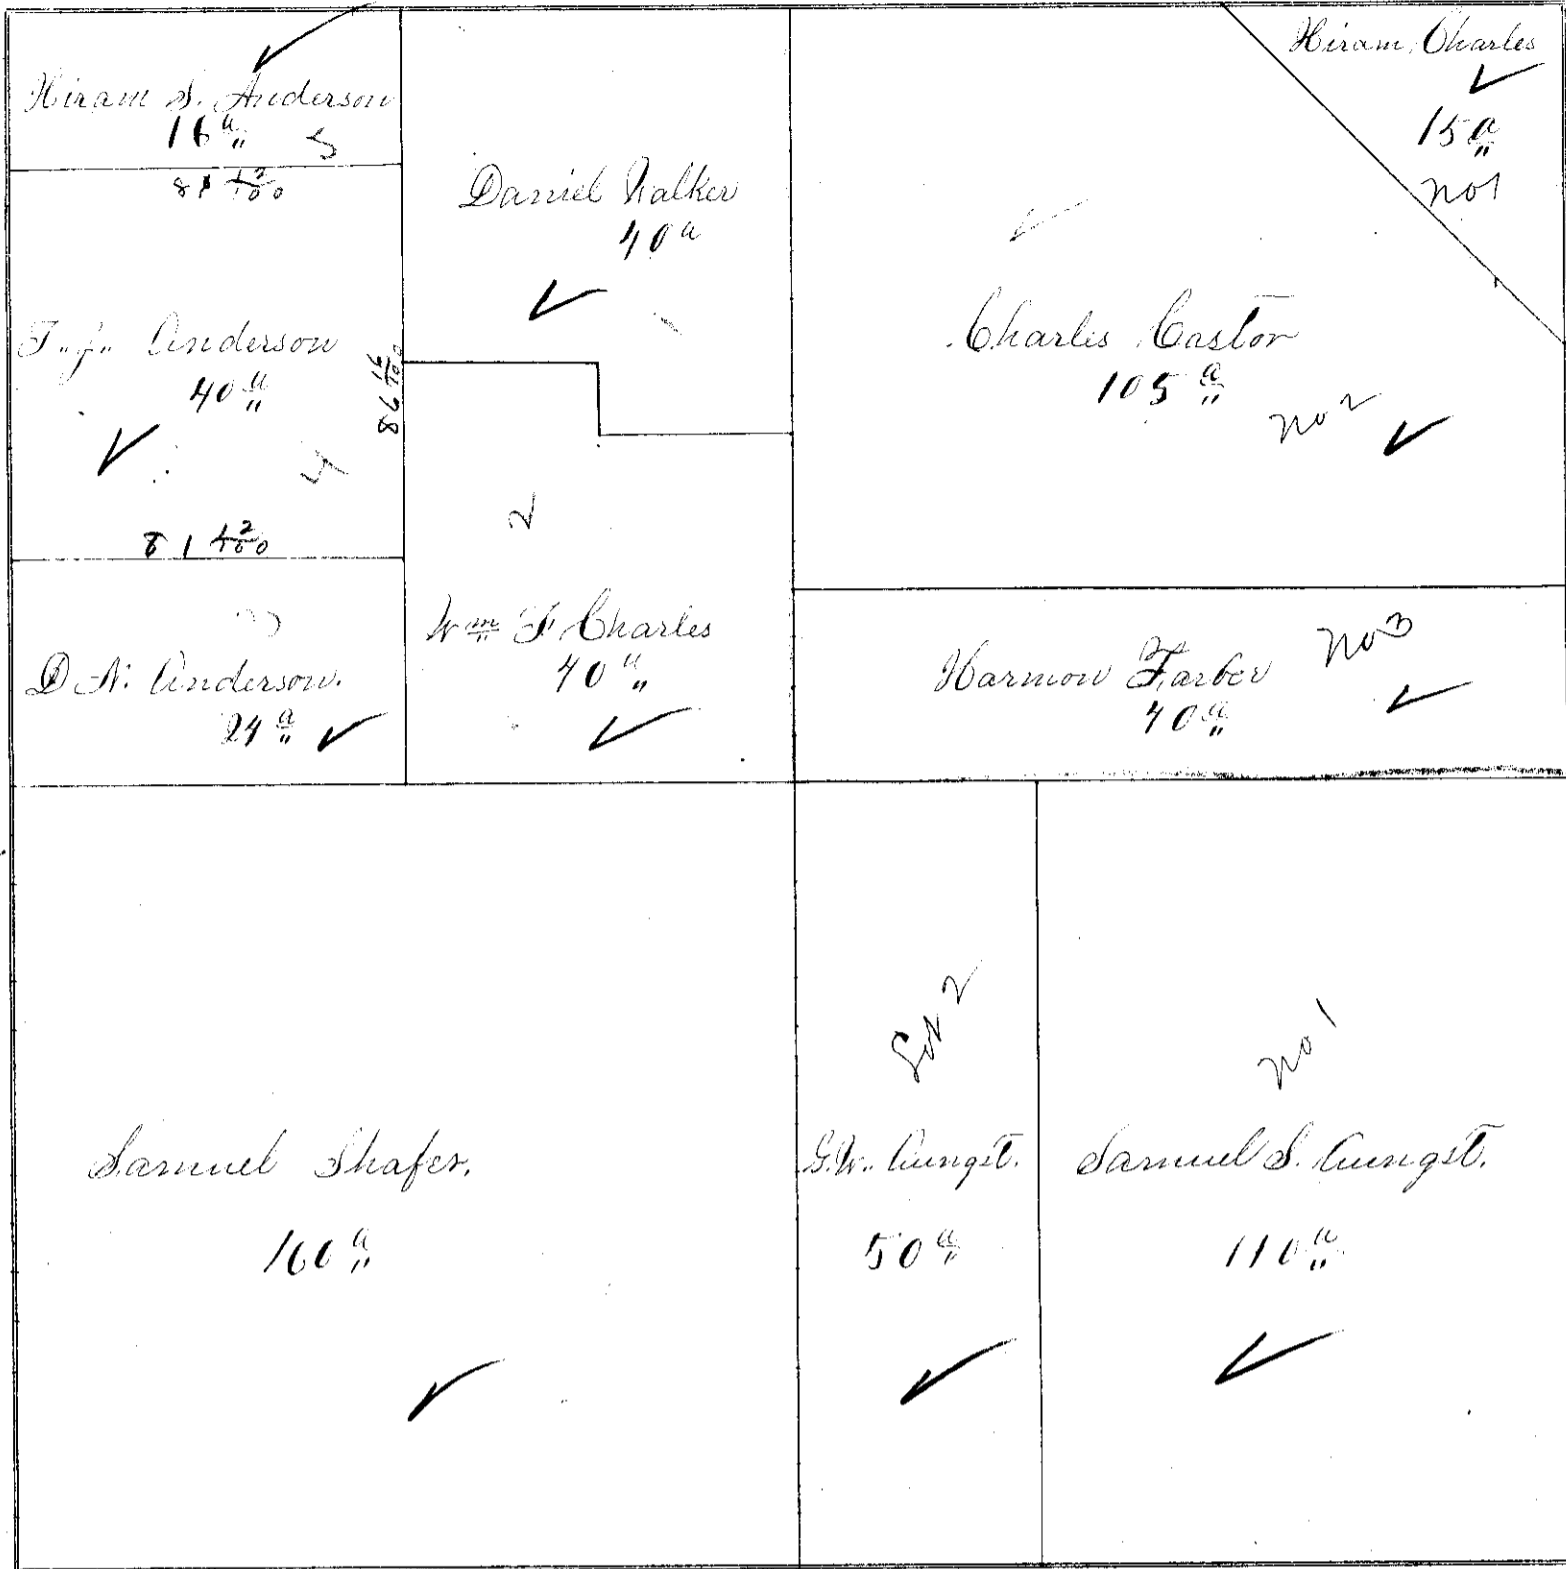 Hiram S. Anderson
16 a
5
81 12/100
T. J. Anderson
40 a
86 16/100
4
81 12/100
3
D. N. Anderson.
24 a
Daniel Walker
40 a
1
2
Wm F Charles
40 a
Hiram Charles
15 a
No 1
Charles Castor
105 a
No 2
Harmon Farber
40 a
No 3
Samuel Shafer.
160 a
Lot 2
G. W. Aungst.
50 a
No 1
Samuel S. Aungst.
110 a